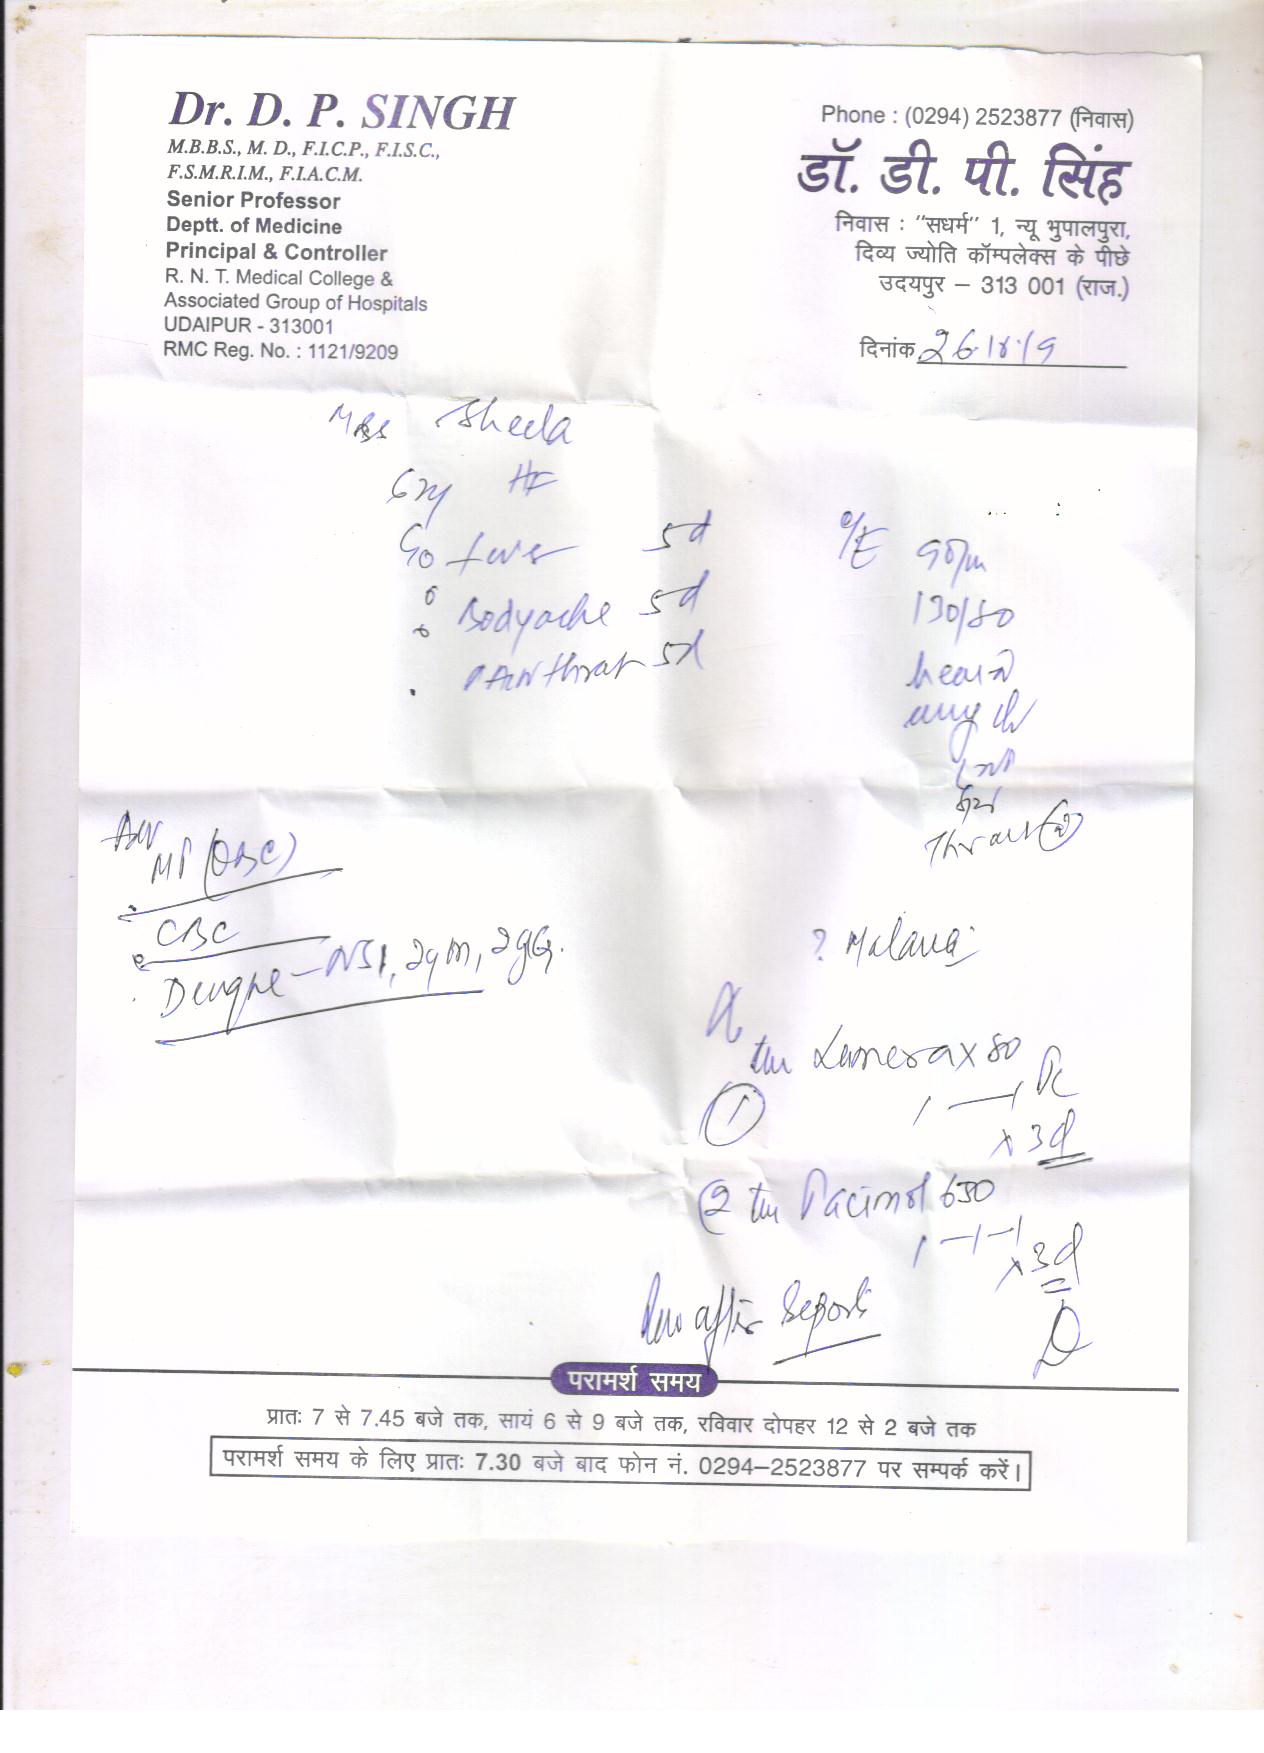 Dr. D. P. SINGH
M.B.B.S., M. D., F.I.C.P., F.I.S.C.,
F.S.M.R.I.M., F.I.A.C.M.
Senior Professor
Deptt. of Medicine
Principal & Controller
R. N. T. Medical College &
Associated Group of Hospitals
UDAIPUR - 313001
RMC Reg. No. : 1121/9209
Phone : (0294) 2523877 (निवास)
डॉ. डी. पी. सिंह
निवास : "सधर्म" 1, न्यू भुपालपुरा,
दिव्य ज्योति कॉम्पलेक्स के पीछे
उदयपुर – 313 001 (राज.)
दिनांक
Mrs Sheela
fever 5d
Bodyache 5d
throat 5d
O/E 90/m
130/80
Throat
Adv
MP (QBC)
CBC
Dengue - NS1, IgM, IgG.
? Malaria
Rx
① Lumerax 80
1 — 1
x 3d
② Pacimol 650
1 — 1 — 1
x 3d
after reports
परामर्श समय
प्रातः 7 से 7.45 बजे तक, सायं 6 से 9 बजे तक, रविवार दोपहर 12 से 2 बजे तक
परामर्श समय के लिए प्रातः 7.30 बजे बाद फोन नं. 0294–2523877 पर सम्पर्क करें।